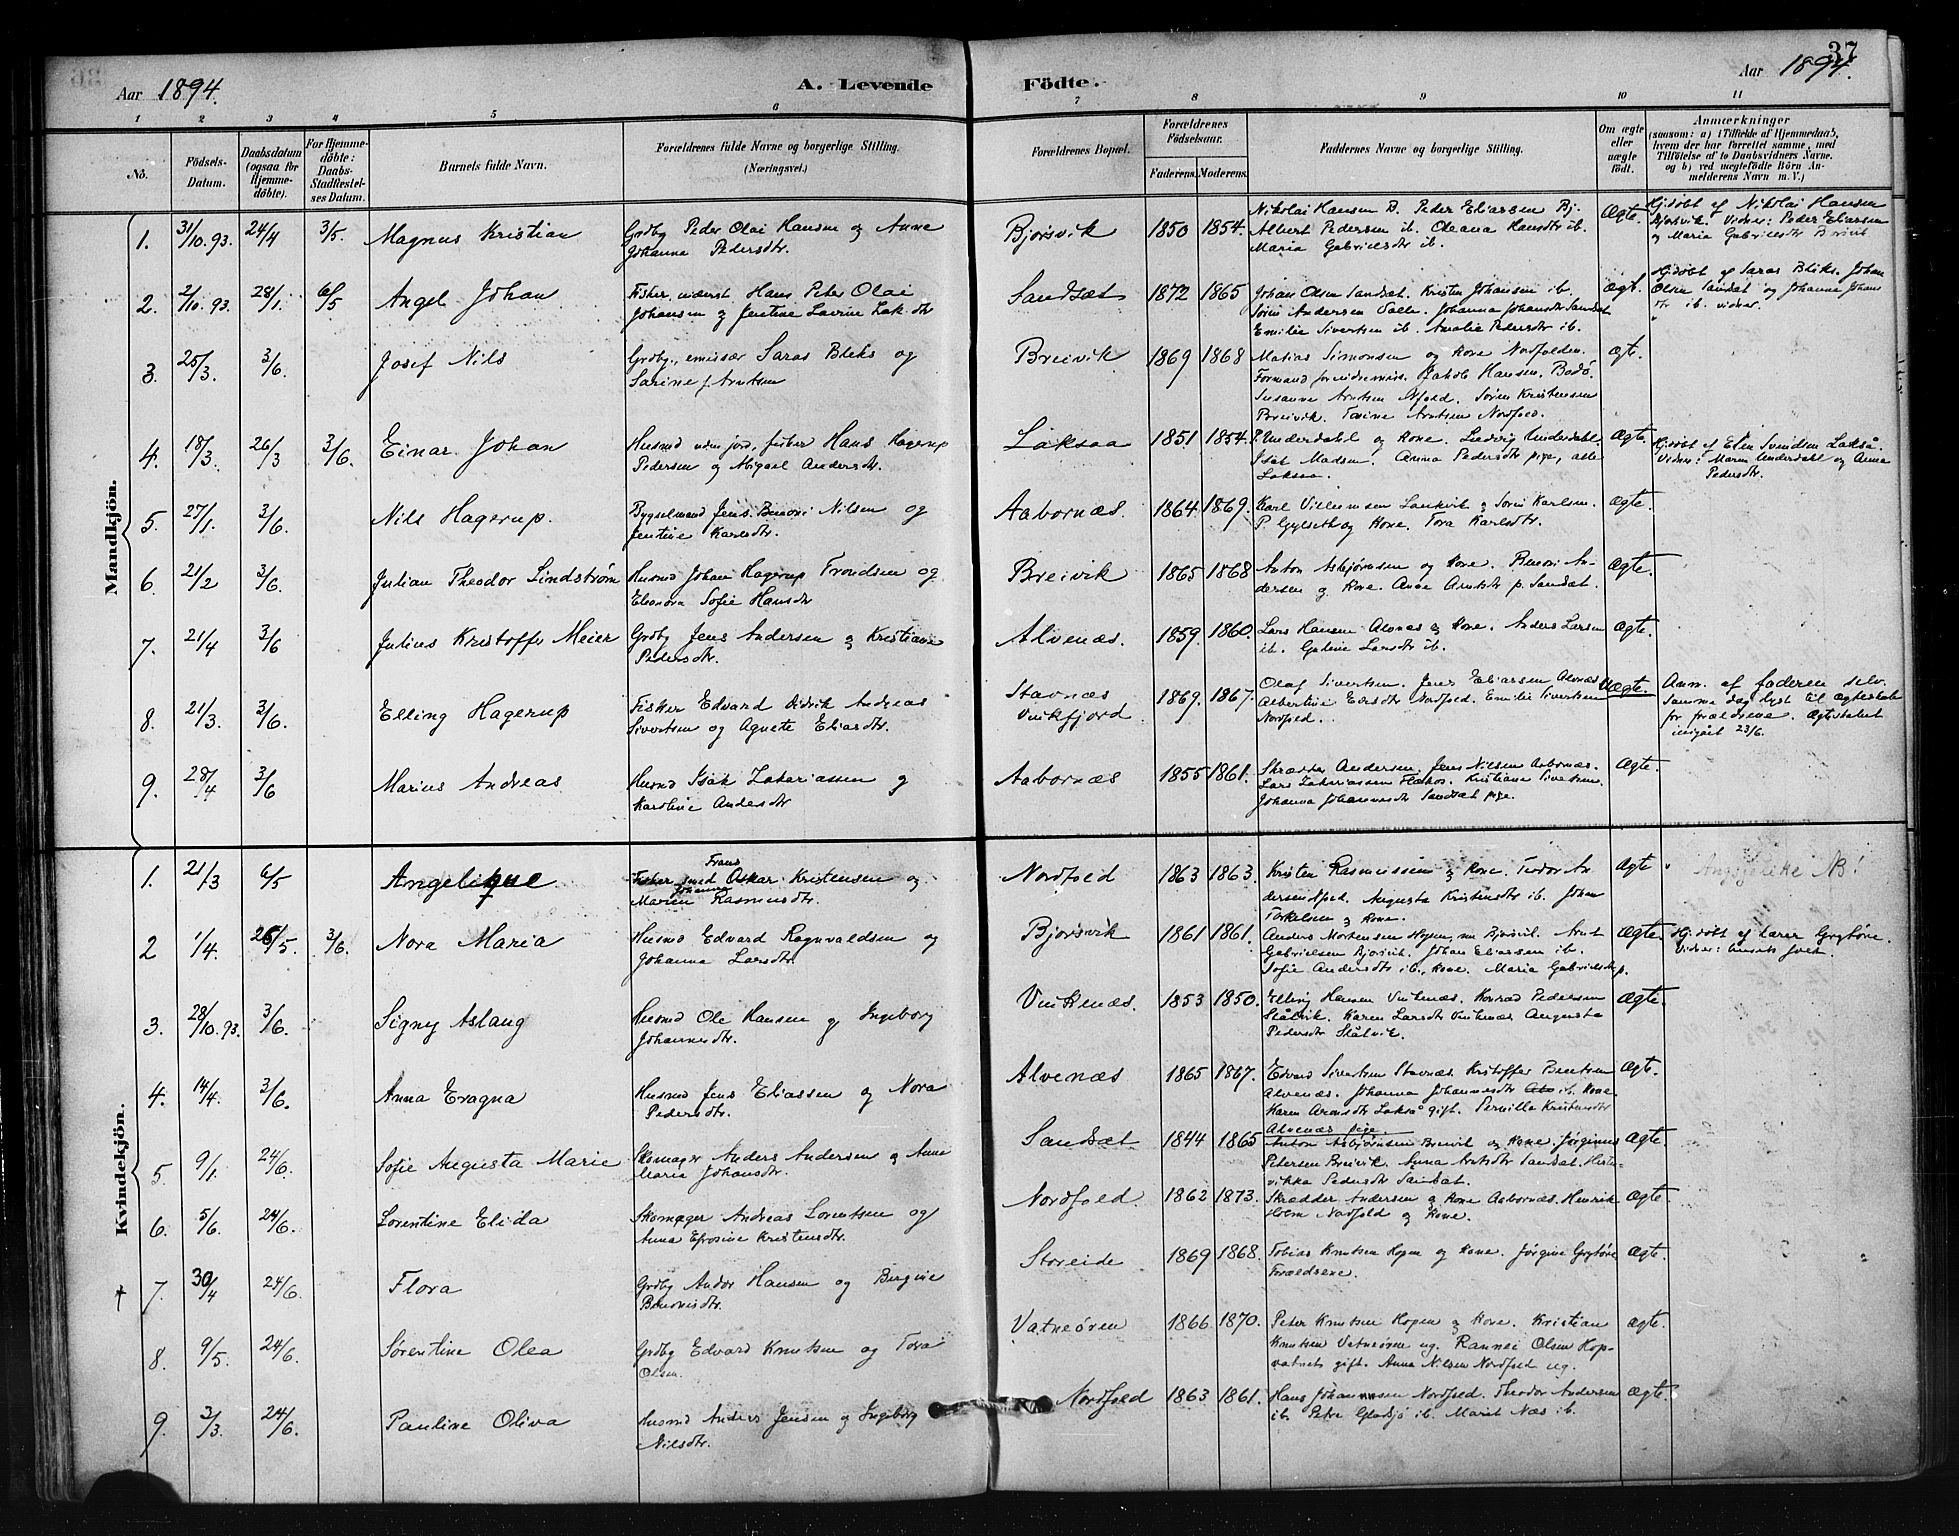 37
Aar 1894. A. Levende Födte. Aar 1894.
1 2 3 4 5 6 7 8 9 10 11
No. Födsels-Datum. Daabsdatum (ogsaa for Hjemmedöbte). For Hjemmedöbte: Daabs-Stadfæstelses Datum. Barnets fulde Navn. Forældrenes fulde Navne og borgerlige Stilling. (Næringsvei.) Forældrenes Bopæl. Forældrenes Födselsaar. Faderens. Moderens. Faddernes Navne og borgerlige Stilling. Om ægte eller uægte födt. Anmærkninger (saasom: a) i Tilfælde af Hjemmedaab, hvem der har forrettet samme, med Tilföielse af to Daabsvidners Navne, og b) ved uægtefödte Börn Anmelderens Navn m. V.)
Mandkjön.
1. 31/10.93. 24/4 3/5. Magnus Kristian Grdby Peder Olai Hansen og Anne Bjorsvik 1850 1854. Nikolai Hansen B. Peder Eliassen Bj. Ægte. Hj.døbt af Nikolai Hansen
Johanna Pedersdtr. Albert Pedersen ib. Oleana Hansdtr ib. Bjorsvik. Vidner: Peder Eliassen
Maria Gabrielsdtr ib. og Maria Gabrielsdtr
2. 2/10.93. 28/1. 6/5 Angel Johan Fisker, Hans Peter Olai Sandsæt 1872 1865 Johan Olsen Sandsæt. Kristen Johansen ib. Ægt. Hj.døbt af Saras Bleks. Johan
Johansen og Jentine Lavine Sørin Andersen Johanna Johansdtr Sandsæt Olsen Sandsæt og Johanna Johans
Emilie Sivertsen ib. Amalie Pedersdtr ib. dtr ib. vidner.
3. 25/3. 3/6. Josef Nils Grdby., emissær Saras Bleks og Breivik 1869 1868 Matias Simonsen og Kone Nordfolden. Ægte.
Sarine f. Arntsen Formand Jakob Hansen, Bodø.
Susanne Arntsen Nfold. Søren Kristensen
Breivik. Arntsen Nordfold.
4. 18/3. 26/3 3/6. Einar Johan Husmd uden jord, fisker Hans Hagerup Laksaa 1851 1854. P. Underdahl og Kone. Ludvig Underdahl. Ægte. Hj.døbt af Elen Svendsen Lakså.
Pedersen og Abigael Andersdtr. Madsen. Anna Pedersdtr pige, alle Vidner: Maren Underdahl og Anna
Laksaa. Pedersdtr.
5. 27/1. 3/6. Nils Hagerup. Bygselmand Jens Benoni Nilsen og Aabornæs. 1864 1869. Karl Villumsen og Karlsen. Ægte.
Jentine Karlsdtr. P. Gylseth og Kone. Tora Karlsdtr.
6. 21/2 3/6. Julian Theodor Lindstrøm Husmd Johan Hagerup Trondsen og Breivik 1865 1868 Anton Asbjørnsen og Kone. Benoni An- Ægte.
Eleonora Sofie Hansdtr dersen og Kone. Anna Arntsdtr p. Sandsæt.
7. 21/4 3/6 Julius Kristoffer Meier Grdby Jens Andersen og Kristiane Alvenæs. 1859. 1860. Lars Hansen Alvnæs og Kone. Anders Larsen Ægte.
Pedersdtr. ib. Larsdtr ib.
8. 21/3. 3/6. Elling Hagerup Fisker Edvard Didrik Andreas Stavnæs 1869. 1867. Olaf Sivertsen. Jens Eliassen Alvnæs Uægte. Anm. af faderen selv.
Sivertsen og Agnete Eliasdtr. Vinkfjord. Albertine Nordfold. Emilie Sivertsen Samme dag lyst til ægteskab
Nordfold. for forældrene. Ægteskabet
indgået 23/6.
9. 28/4 3/6 Marius Andreas Husmd Isak Zakariassen og Aabornæs 1855 1861. Skræder Andersen. Jens Nilsen Aabornæs. Ægte.
Karoline Andersdtr Lars Zakariassen Kristiane Sivertsen.
Johanna Johannesdtr Sandsæt pige.
Kvindekjön.
Frans
1. 21/3 6/5 Angelique Fisker Oskar Kristensen og Nordfold 1863 1863. Kristen Rasmussen og Kone. Teodor An Ægte Angjelike N!
Johanna
Maren Rasmusdtr. dersen Nfold. Augusta Kristensdtr ib. Johan
Torkelsen og Kone.
2 1/4. 26/5 3/6. Nora Maria Husmd Edvard Rognvaldsen og Bjorsvik 1861 1861. Anders Mortensen Bjorsvik. Arnt Ægte. Hj.døbt af lærer Grytøyr.
Johanna Larsdtr. Gabrielsen Bjorsvik. Johan Eliassen ib. Vidner:
Sofie Andersdtr ib., Kone. Maria Gabrielsdtr p.
3. 28/10.93. 3/6. Signy Aslaug Husmd Ole Hansen og Ingeborg Vinkenæs. 1853 1850. Elling Hansen Vinkenæs. Konrad Pedersen Ægte.
Johannesdtr. Stålvik. Karen Larsdtr Vinkenæs Augusta
Pedersdtr Stålvik.
4. 14/4. 3/6. Anna Eragna Husmd Jens Eliassen og Nora Alvenæs 1865 1867. Edvard Sivertsen Stavnæs. Kristoffer Bentsen Ægte.
Pedersdtr. Alvenæs. Johanna Johannesdtr ib. Kone.
Karen Lakså gift. Pernilla Kristensdtr
Alvenæs pige.
5. 9/1. 24/6. Sofie Augusta Marie Skomager Anders Andersen og Anne Sandsæt 1844 1865 Anton Asbjørnsen Breivik og Kone. Jørginus Ægte.
Maria Johansdtr. Petersen Breivik. Anna Arntsdtr Sandsæt. Hen-
rikka Pedersdtr Sandsæt.
6. 5/6. 24/6. Lorentine Elida Skomager Andreas Lorentsen og Nordfold 1862 1873. Skrædder Andersen og Kone Aabornæs. Henrik Ægte.
Anna Efrosine Kristensdtr. Nordfold og Kone.
7. 30/4 24/6. Flora Grdby Andor Hansen og Bergine Storeide 1869 1868. Tobias Knutsen Hopen og Kone. Jørgine Grytøyr Ægte.
Benonisdtr. Forældrene.
8. 9/5. 24/6. Sørentine Olea Grdby Edvard Knutsen og Tora Vatneøren 1866 1870. Peter Knutsen Hopen og Kone. Kristian Ægte.
Olsen. Knutsen Vatneøren ug. Rannei Olsen Hop-
vatnet gift. Anna Nilsen Nordfold ug.
9. 3/3. 24/6. Pauline Oliva Husmd Anders Jensen og Ingeborg Nordfold 1863 1861. Hans Johannesen Nordfold. Theodor Andersen Ægte.
Nilsdtr. ib. Petra ib. Marit Næs ib.